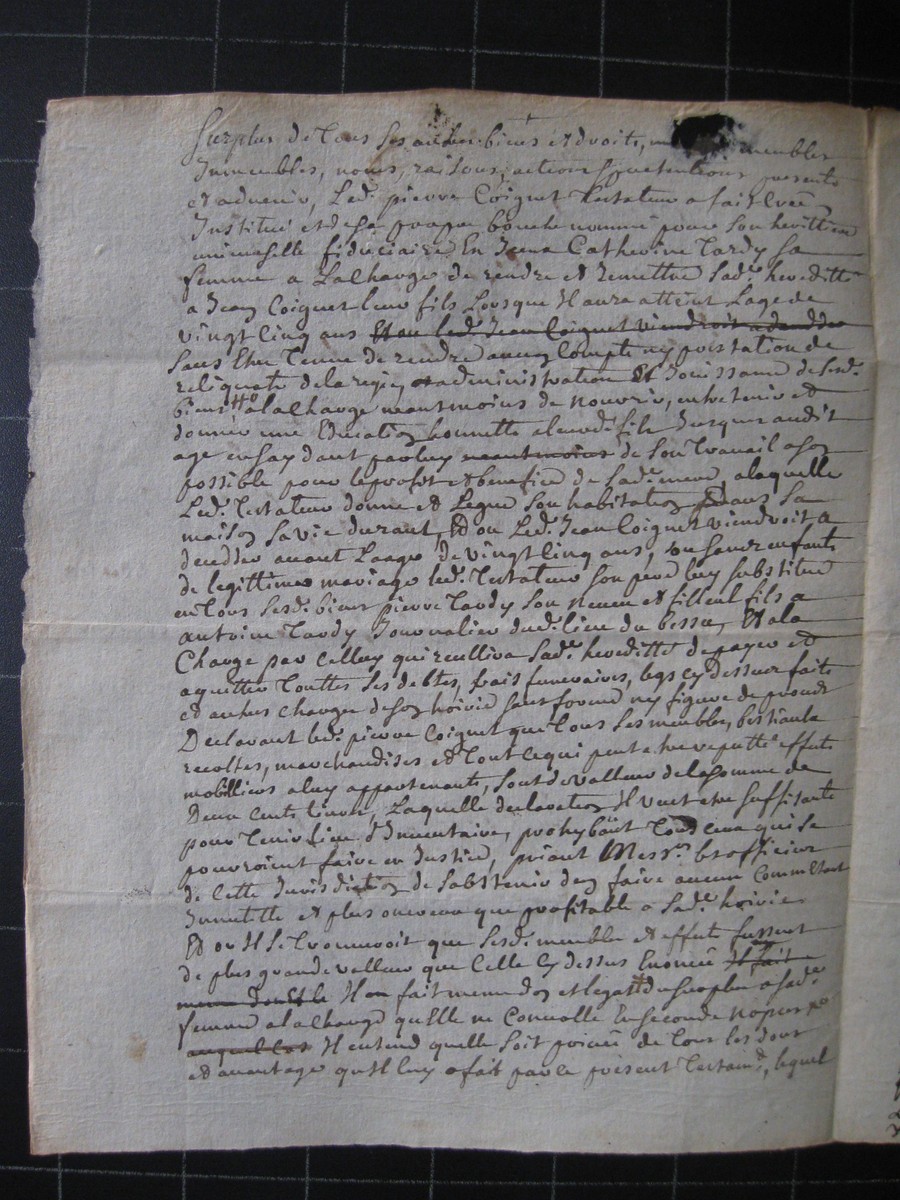 Surplus de Tous ses autres biens et droits, meubles
Immeubles, noms, raisons, actions & pretentions presents
et advenir, Led.t pierre Coignet Testateur a fait Creé
Institué et de sa propre bouche nommé pour son herittiere
universelle fiduciaire En Jeanne Catherine Tardy sa
femme a La Charge de rendre et remettre Sad.e hereditté
a Jean Coignet leur fils Lorsque Il aura atteint Lage de
vingt Cinq ans Et ou led.t Jean Coignet viendroit a deceder
Sans Etre Tenue de rendre aucun Compte ny prestation de
reliquats de la regie, et administration Et Jouissance de Sesd.
biens a la Charge neantmoins de nourrir, entretenir et
donner une Education honnette a leurd. fils Jusques audit
age en saydant par luy neantmoins de Son Travail a son
possible pour le profit et benefice de Sad.e mere, a laquelle
Led.t Testateur donne et Legue Son habitation dans Sa
maison Sa vie durant, Et ou Led.t Jean Coignet viendroit a
deceder avant Laage de vingt Cinq ans, ou sans enfants
de legittime mariage led.t Testateur Son pere luy substitue
en tous Sesd. biens pierre Tardy Son neveu et filleul fils a
antoine Tardy Journalier dud.t lieu du bessu, Et a la
Charge par Celluy qui recullira Sad.e heredittè de payer et
aquitter Touttes Ses debtes, frais funeraires, legs cy dessus faits
et autres Charges de son hoirie sans forme ny figure de procès
Declarant led.t pierre Coignet que Tous Ses meubles, bestiaux
recoltes, marchandises et Tout Ce qui peut etre reputté effets
mobilliers a luy appartenants, Sont de valleur de la somme de
Deux Cents livres, Laquelle declaration Il veut etre suffisante
pour Tenir Lieu d'Inventaire, prohybant Tous Ceux qui se
pourroient faire en Justice, priant Mess.rs les officiers
de Cette Jurisdiction de Sabstenir den faire aucun Comme Etant
Innutille et plus onereux que profitable a Sad.e hoirie
Et ou Il Se Trouveroit que Sesd. meubles et effets fussent
de plus grande valleur que Celle Cy dessus Enoncée Il fait
Il en fait meme don et legat du surplus a Sad.e
femme a la Charge quElle ne Convolle En Seconde nopces
auquel Cas Il entend quelle Soit privée de Tous les dons
et avantages quIl luy a fait par le present Testam.t, lequel